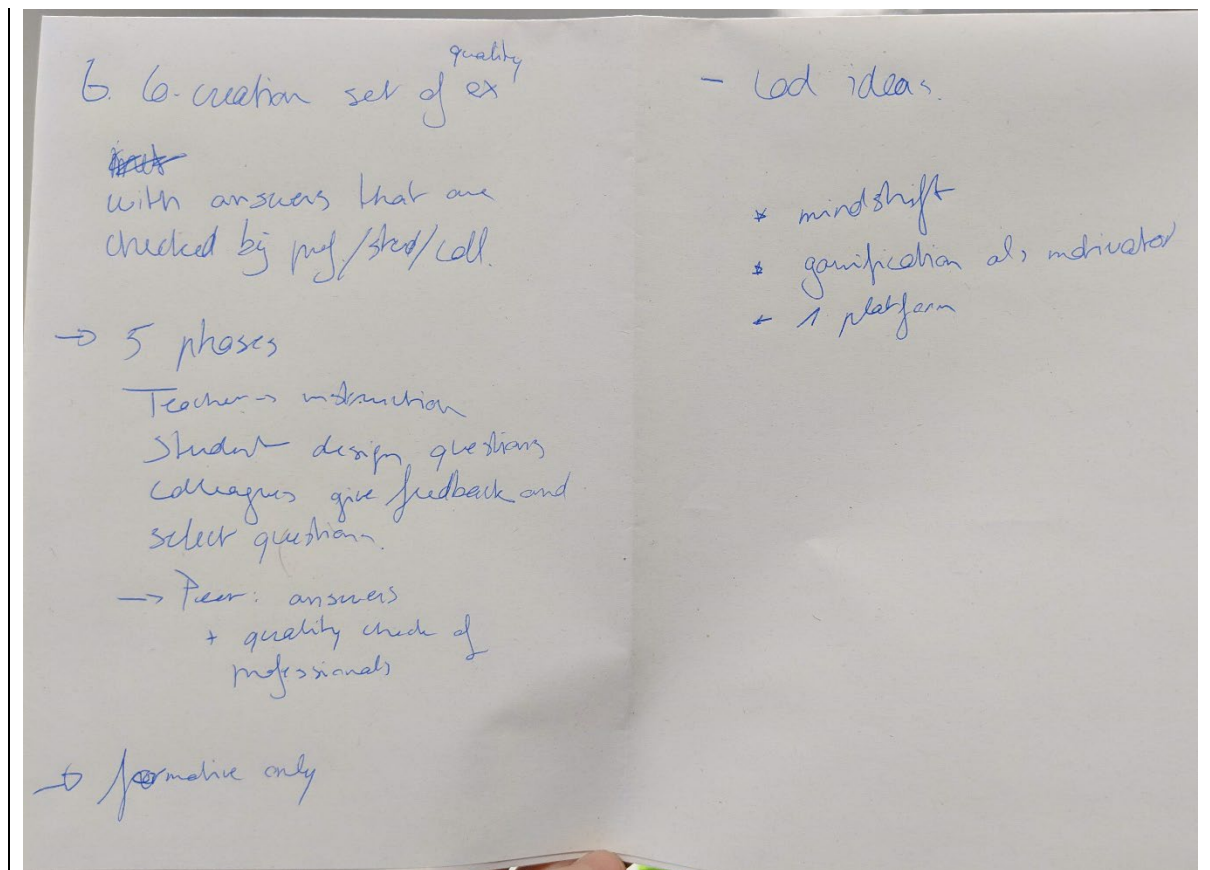 6. Co-creation set of quality ex
with answers that are
checked by prof/stud/coll.
→ 5 phases
Teacher → instruction
Student design questions
colleagues give feedback and
select questions.
→ Peer: answers
+ quality check of
professionals
→ formative only
- ideas.
* mindshift
* gamification als motivator
* 1 platform